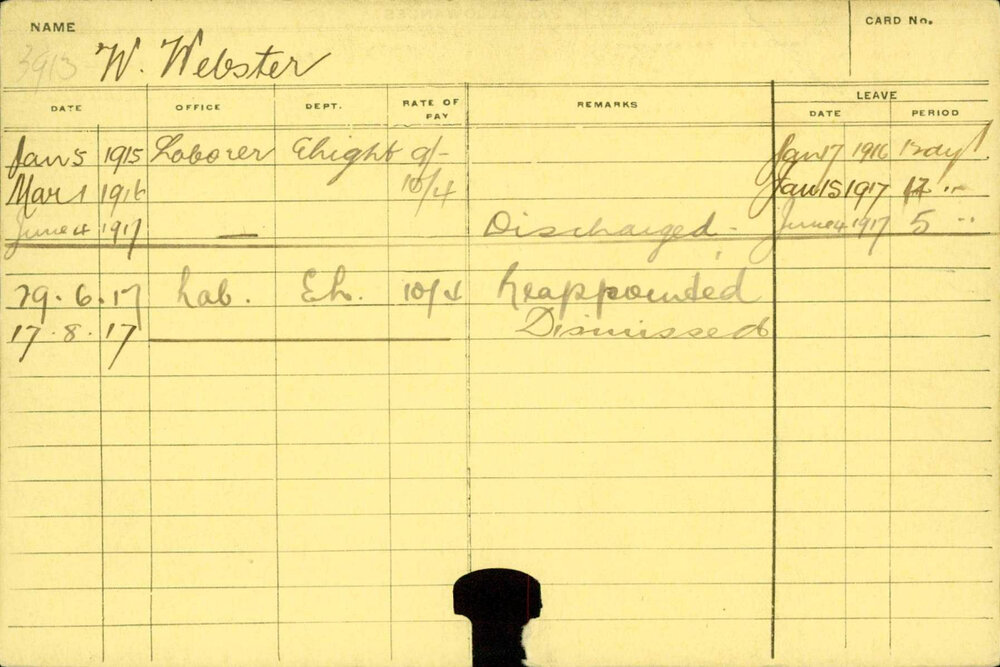 NAME
CARD No.
3913 W. Webster
DATE OFFICE DEPT. RATE OF PAY REMARKS LEAVE
DATE PERIOD
Jan 5 1915 Laborer Elight 9/- Jan 17 1916
Mar 1 1916 10/4 Jan 15 1917 "
June 4 1917 — Discharged - June 4 1917 5 "
29.6.17 Lab. El. 10/4 Reappointed
17.8.17 Dismissed